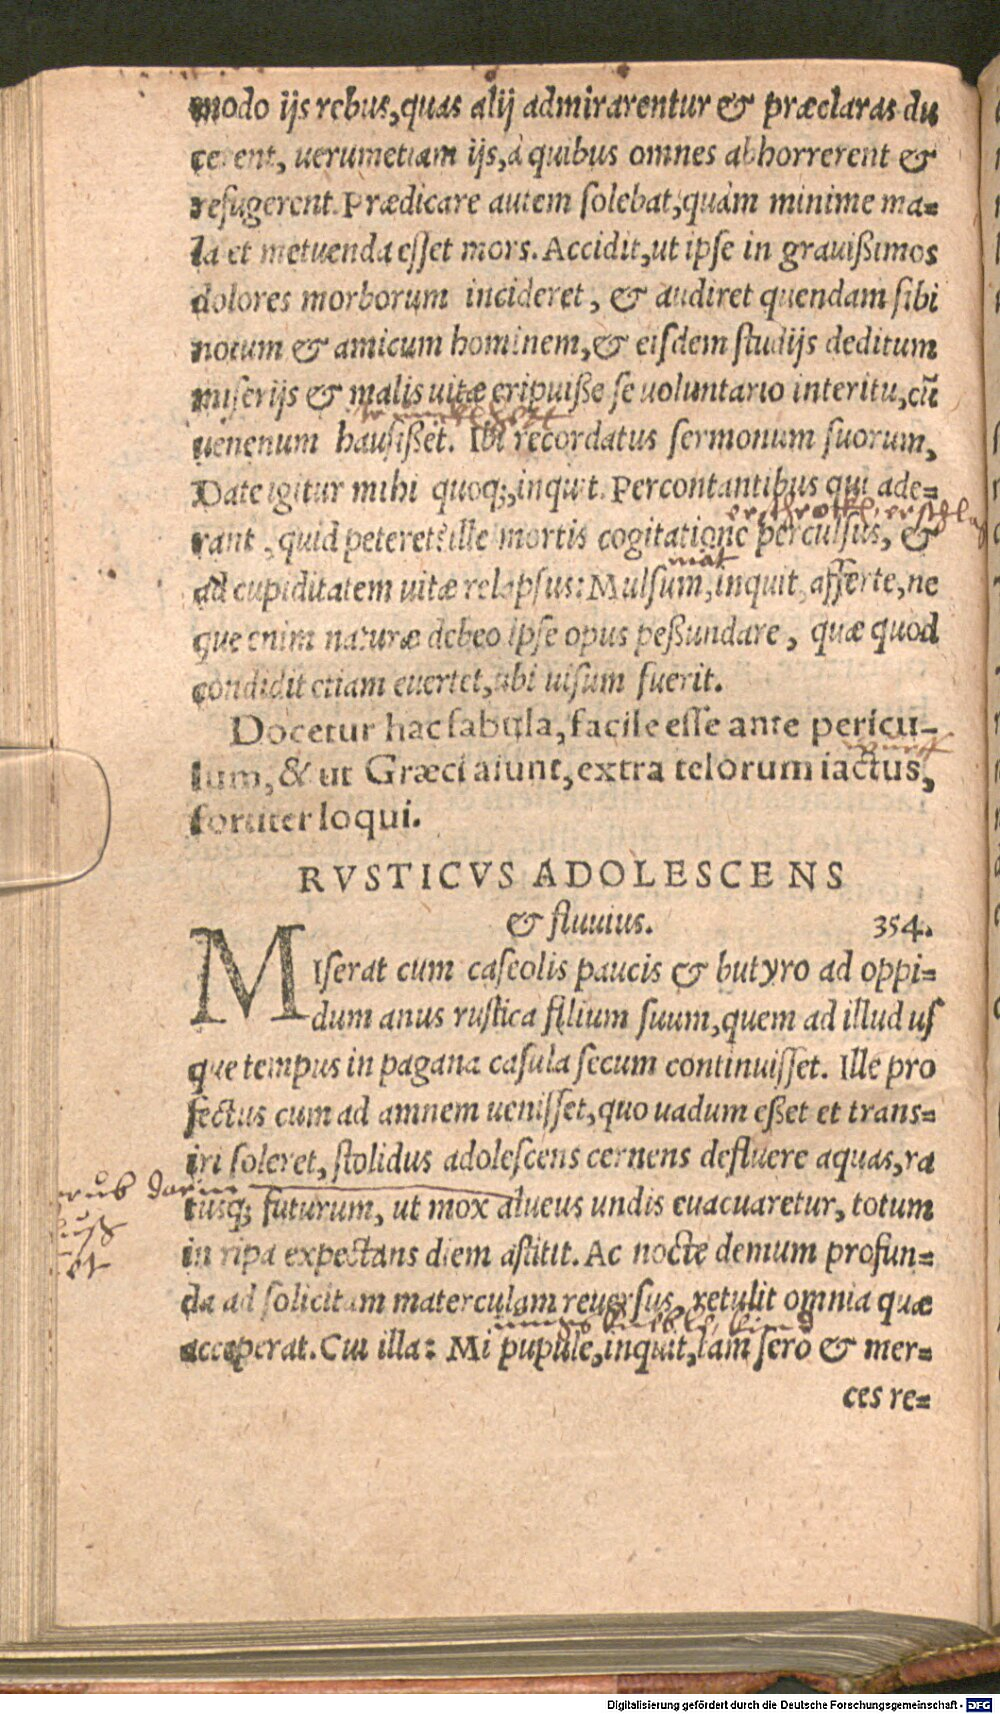 modo ijs rebus, quas alij admirarentur & præclaras du
cerent, uerumetiam ijs, à quibus omnes abhorrerent &
refugerent. Prædicare autem solebat, quàm minime ma=
la et metuenda esset mors. Accidit, ut ipse in grauißimos
dolores morborum incideret, & audiret quendam sibi
notum & amicum hominem, & eisdem studijs deditum
miserijs & malis uitæ eripuiße se uoluntario interitu, cũ
uenenum hausißet. Ibi recordatus sermonum suorum,
Date igitur mihi quoq;, inquit. Percontantibus qui ade=
rant, quid peteret: ille mortis cogitatione perculsus, &
ad cupiditatem uitæ relapsus: Mulsum, inquit, afferte, ne
que enim naturæ debeo ipse opus peßundare, quæ quod
condidit etiam euertet, ubi uisum fuerit.
Docetur hac fabula, facile esse ante pericu-
lum, & ut Græci aiunt, extra telorum iactus,
fortiter loqui.
RVSTICVS ADOLESCENS
& fluuius. 354.
MIserat cum caseolis paucis & butyro ad oppi=
dum anus rustica filium suum, quem ad illud us
que tempus in pagana casula secum continuisset. Ille pro
fectus cum ad amnem uenisset, quo uadum eßet et trans=
iri soleret, stolidus adolescens cernens defluere aquas, ra
tusq; futurum, ut mox alueus undis euacuaretur, totum
in ripa expectans diem astitit. Ac nocte demum profun=
da ad solicitam materculam reuersus, retulit omnia quæ
acceperat. Cui illa: Mi pupule, inquit, iam sero & mer=
ces re=
Digitalisierung gefördert durch die Deutsche Forschungsgemeinschaft - DFG